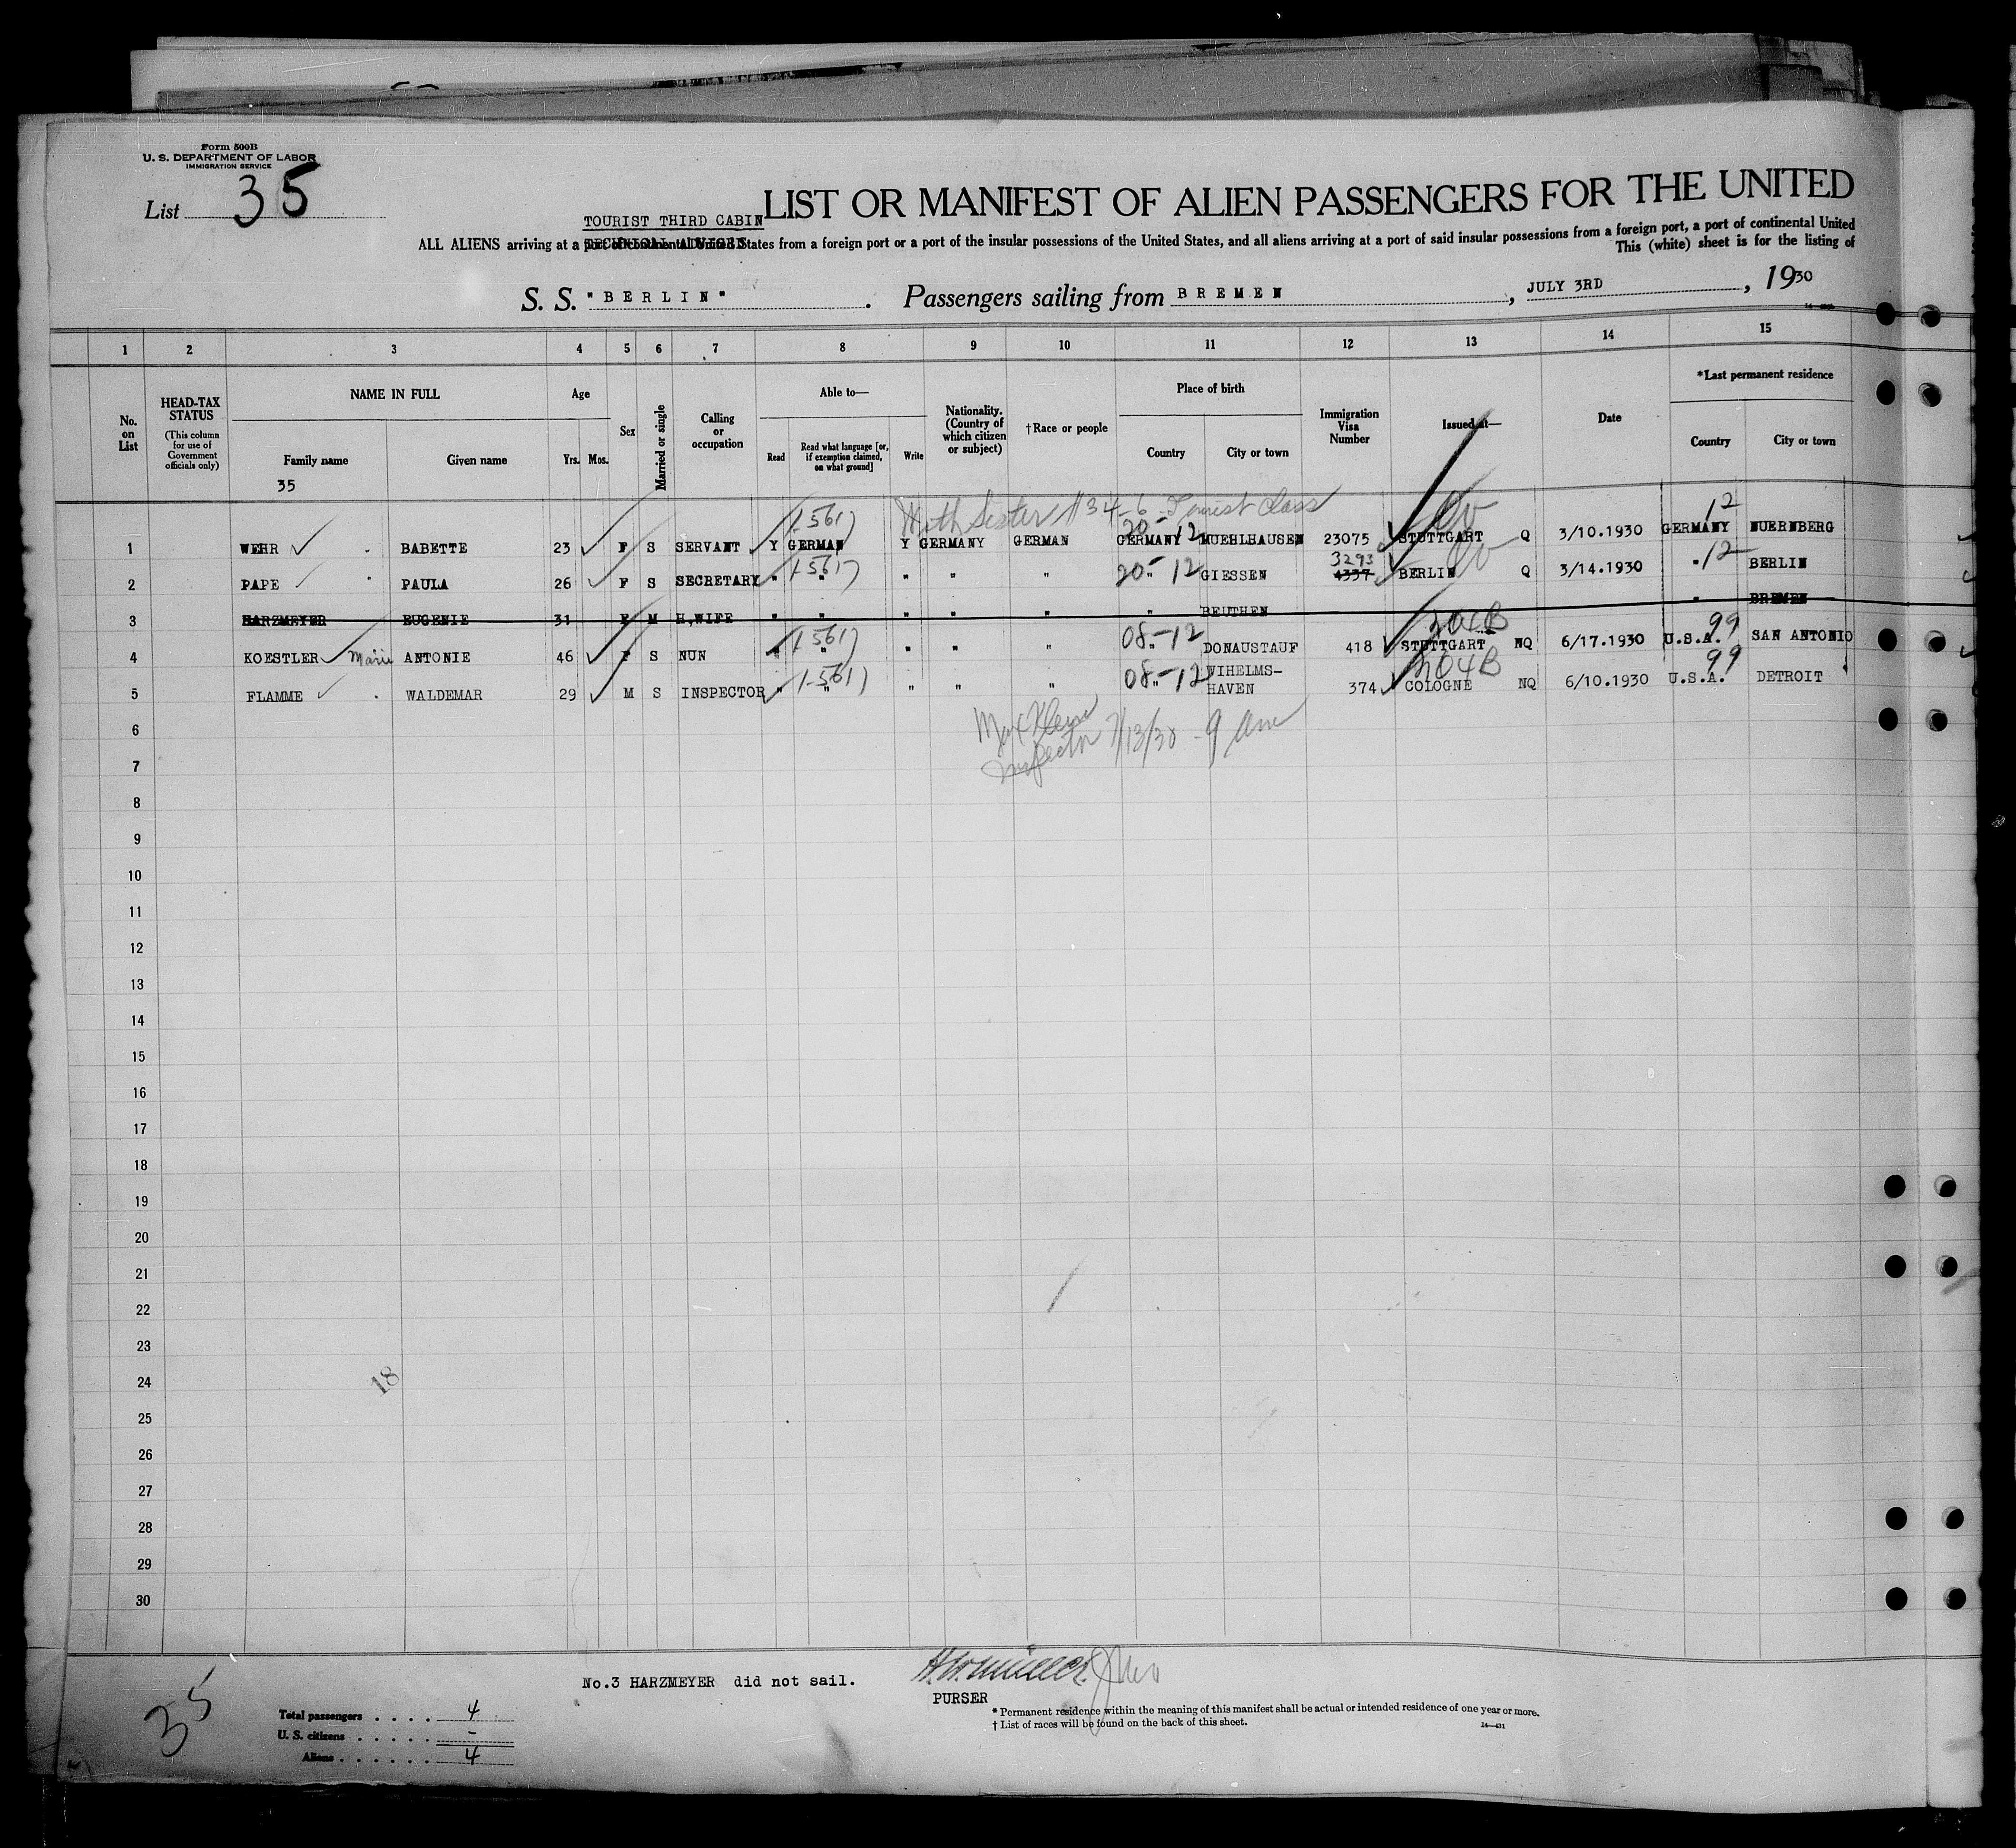 Form 500B
U. S. DEPARTMENT OF LABOR
IMMIGRATION SERVICE
List 35
LIST OR MANIFEST OF ALIEN PASSENGERS FOR THE UNITED
TOURIST THIRD CABIN
ALL ALIENS arriving at a port of continental United States from a foreign port or a port of the insular possessions of the United States, and all aliens arriving at a port of said insular possessions from a foreign port, a port of continental United
This (white) sheet is for the listing of
S. S. "BERLIN". Passengers sailing from BREMEN, JULY 3RD, 1930
1 2 3 4 5 6 7 8 9 10 11 12 13 14 15
No. on List
HEAD-TAX STATUS
(This column for use of Government officials only)
NAME IN FULL
Family name
Given name
35
Age
Yrs. Mos.
Sex
Married or single
Calling or occupation
Able to—
Read
Read what language [or, if exemption claimed, on what ground]
Write
Nationality. (Country of which citizen or subject)
†Race or people
Place of birth
Country
City or town
Immigration Visa Number
Issued at—
Date
*Last permanent residence
Country
City or town
With Sister #34-6 Tourist Class
1-561) 20-12 12
1 WEHR BABETTE 23 F S SERVANT Y GERMAN Y GERMANY GERMAN GERMANY MUEHLHAUSEN 23075 STUTTGART Q 3/10.1930 GERMANY NUERNBERG
1-561) 20-12 3293 12
2 PAPE PAULA 26 F S SECRETARY " " " " " " GIESSEN 4337 BERLIN Q 3/14.1930 " BERLIN
3 HARZMEYER EUGENIE 31 F M H,WIFE " " " " " " BEUTHEN " BREMEN
1-561) 08-12 204B 99
4 KOESTLER Marie ANTONIE 46 F S NUN " " " " " " DONAUSTAUF 418 STUTTGART NQ 6/17.1930 U.S.A. SAN ANTONIO
1-561) 08-12 204B 99
5 FLAMME WALDEMAR 29 M S INSPECTOR " " " " " " WIHELMS-HAVEN 374 COLOGNE NQ 6/10.1930 U.S.A. DETROIT
6
Inspector 7/13/30 - 9 am
7
8
9
10
11
12
13
14
15
16
17
18
19
20
21
22
23
24
18
25
26
27
28
29
30
No.3 HARZMEYER did not sail.
PURSER
35
Total passengers . . . . 4
U. S. citizens . . . . . -
Aliens . . . . . . 4
* Permanent residence within the meaning of this manifest shall be actual or intended residence of one year or more.
† List of races will be found on the back of this sheet.